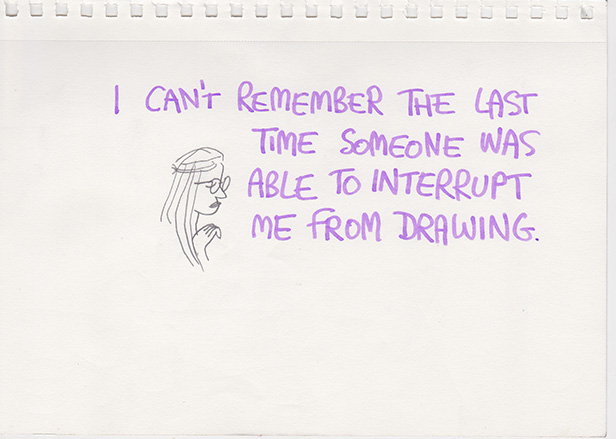 I CAN'T REMEMBER THE LAST
TIME SOMEONE WAS
ABLE TO INTERRUPT
ME FROM DRAWING.